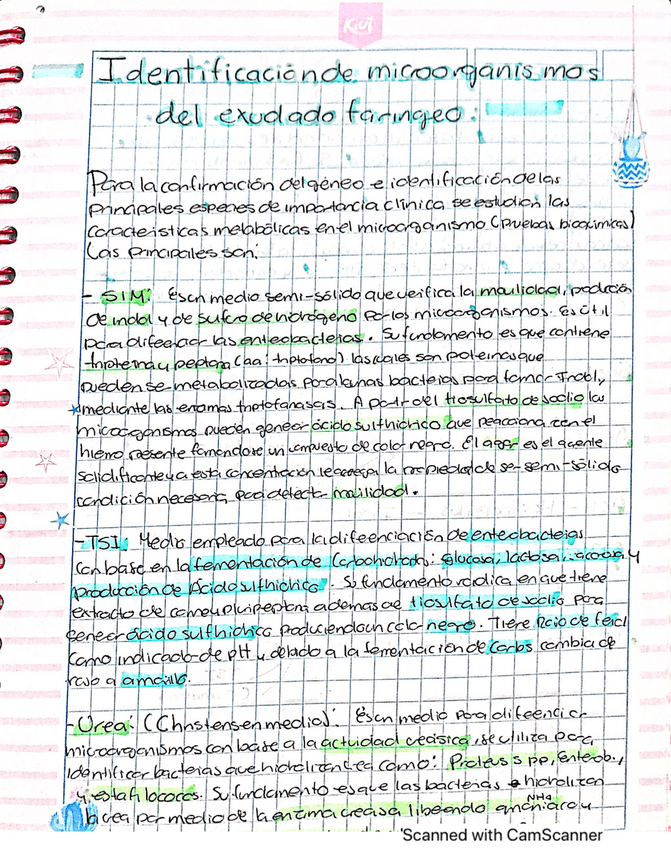 Kiut
Identificación de microorganismos
del exudado faringeo:
Para la confirmación del género e identificación de las
principales especies de importancia clinica se estudian las
características metabólicas en el microorganismo (Pruebas bioquimicas)
Las principales son:
- SIM: Es un medio semi-sólido que verifica la movilidad, producción
de indol y de sulfuro de hidrógeno por los microorganismos. Es útil
para diferenciar las enterobacterias. Su fundamento es que contiene
tripteina y peptona (aa: triptofano) las cuales son proteinas que
pueden se metabolizadas por algunas bacterias para formar Indol,
mediante las enzimas triptofanasas. A partir del tiosulfato de sodio los
microorganismos pueden generar ácido sulfhidrico que reacciona con el
hierro presente formandose un compuesto de color negro. El agar es el agente
solidificante y a esta concentración le la propiedad de ser semi-sólido
condición necesaria para detectar movilidad.
- TSI: Medio empleado para la diferenciación de enterobacterias
con base en la fermentación de Carbohidratos: glucosa, lactosa, y
producción de Ácido sulfhidrico. Su fundamento radica en que tiene
extracto de carne y pluripeptona ademas de tiosulfato de sodio para
generar ácido sulfhidrico produciendo un color negro. Tiene Rojo de fenol
como indicador de pH y debido a la fermentación de carbs cambia de
rojo a amarillo.
- Urea: (Christensen medio): Es un medio para diferenciar
microorganismos con base a la actividad ureásica, se utiliza para
identificar bacterias que hidrolizan urea como: Proteus spp, Enterob.,
y estafilococos. Su fundamento es que las bacterias hidrolizan
la urea por medio de la enzima ureasa liberando amoniaco y
Scanned with CamScanner